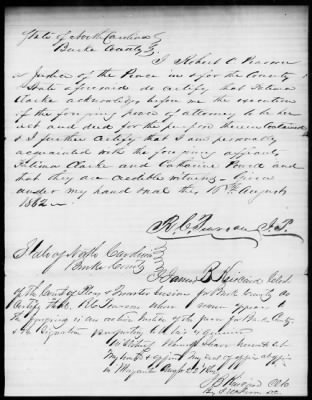 State of North Carolina
Burke County
I Robert C Pearson
a Justice of the Peace in & for the County
& State aforesaid do certify that
Clarke acknowledged before me the execution
of the foregoing power of attorney to be her
act and deed for the purposes therein contained
& I further certify that I am personally
acquainted with the foregoing affiants
Clarke and Catharine and
that they are credible witnesses - Given
under my hand & seal this 16th August
1852
R. C. Pearson J.P.
State of North Carolina
Burke County
I James B Kincaid Clerk
of the Court of Pleas & Quarter Sessions for Burke County do
certify that R C Pearson whose name appears to
the foregoing is an acting Justice of the peace for Burke County
& the signature purporting to be his is genuine
In witness whereof I have hereunto set
my hand & affixed my seal of office at office
in Morganton Augt
J B Kincaid Clk